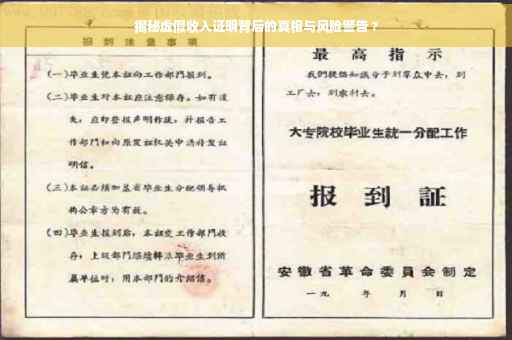 揭秘虚假收入证明背后的真相与风险警告?
报到注意事项
(一)毕业生凭本证向工作部门报到。
(二)毕业生对本证应注意保存。如有遗
失,应即登报声明作废,并报告工
作部门和向原发证机关申请补发证
明信。
(三)本证必须加盖省毕业生分配领导机
构公章方为有效。
(四)毕业生报到后,本证交工作部门收
存;上级部门继续转派毕业生到所
属单位时,用本部门的介绍信。
最高指示
我们提倡知识分子到群众中去,到
工厂去,到农村去。
大专院校毕业生统一分配工作
报到証
安徽省革命委员会制定
一九 年 月 日